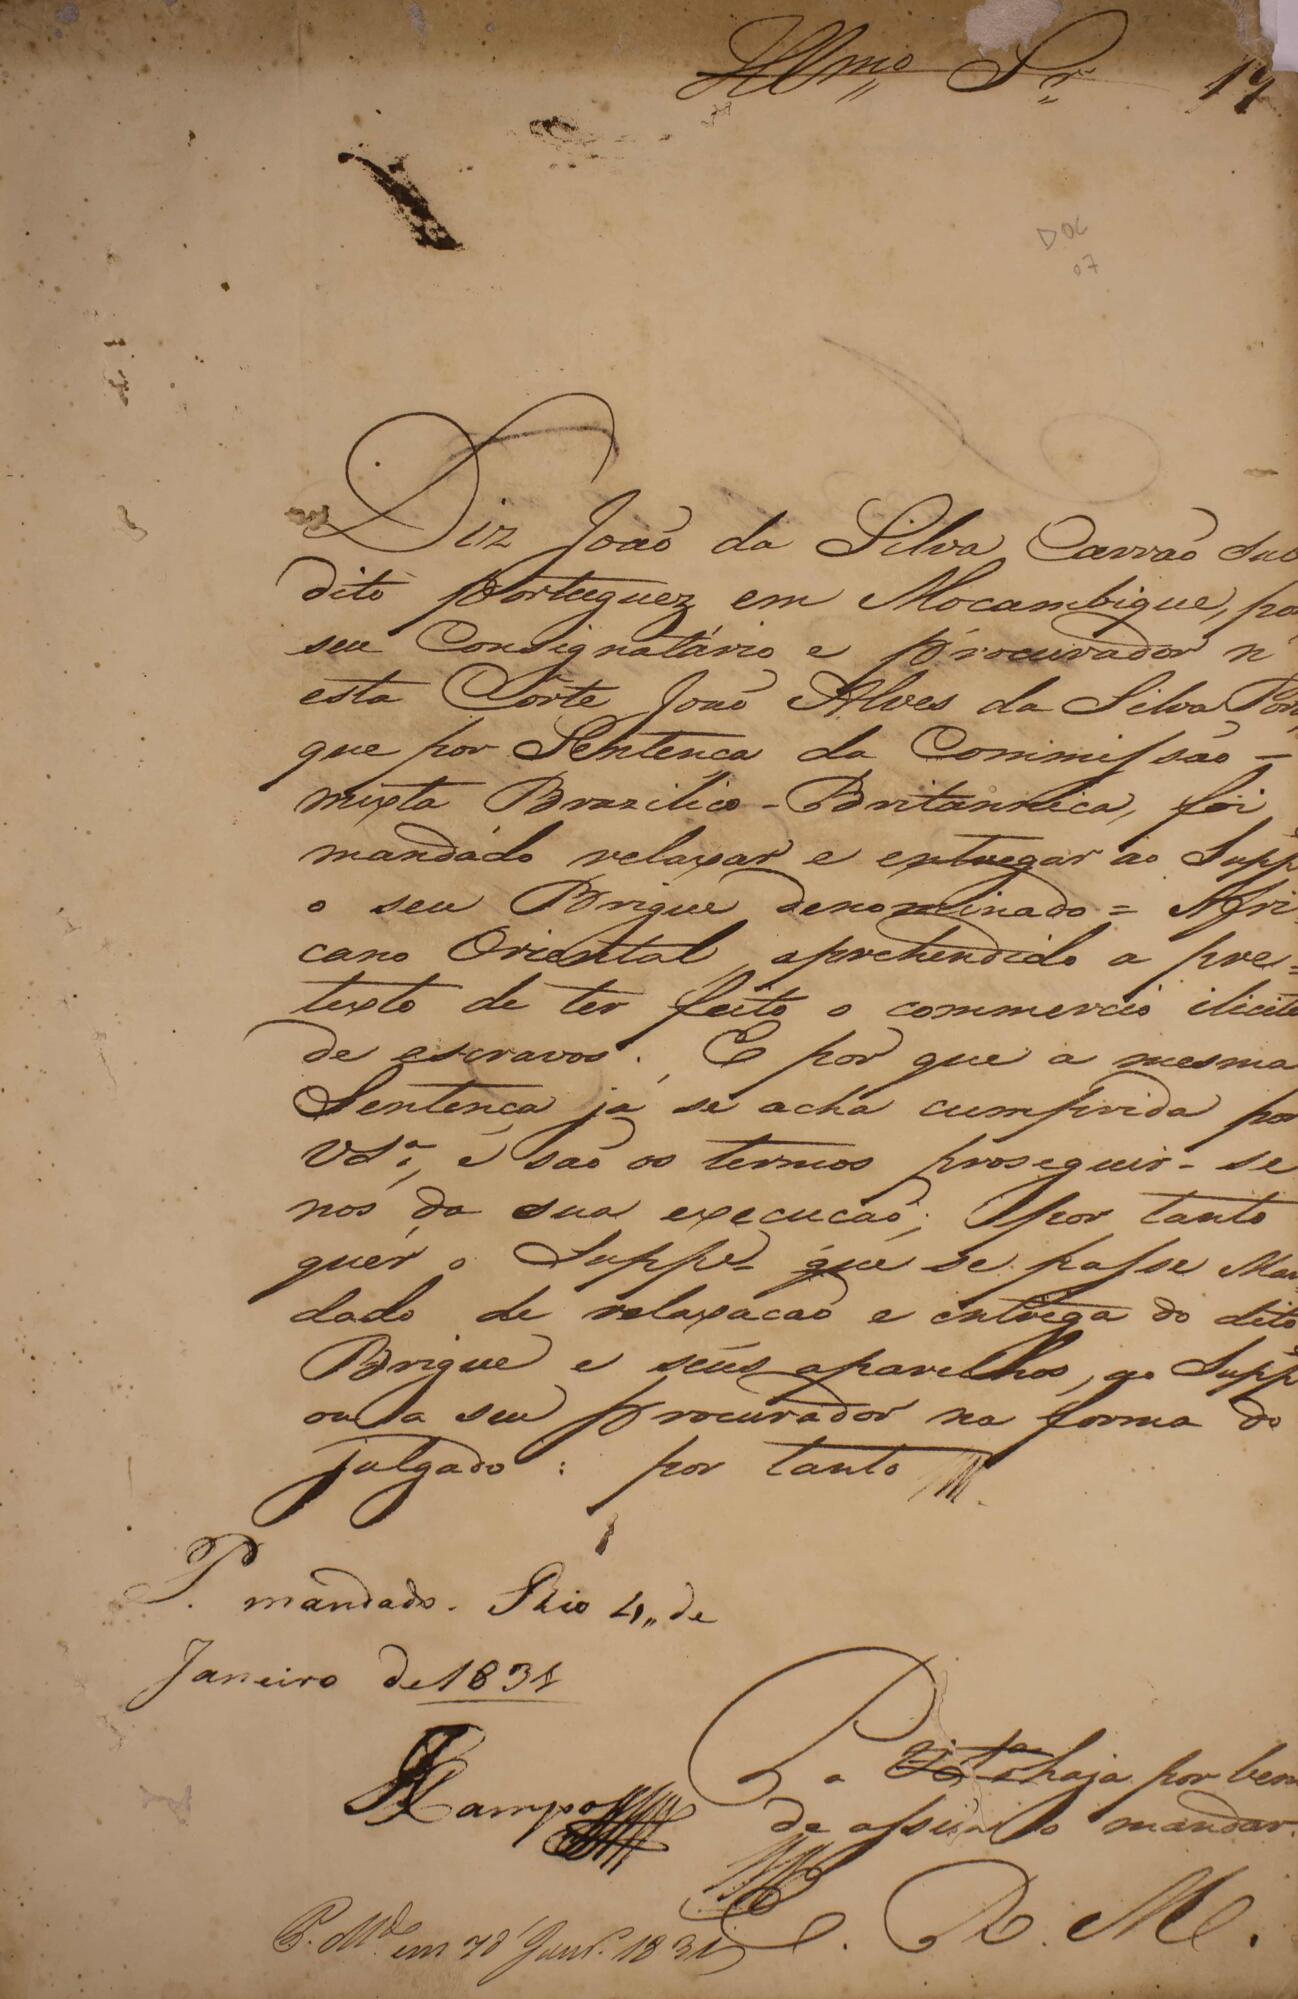 Illmo Sr 17
DOC
07
Diz João da Silva Carrão sub
dito Portuguez em Mocambique, por
seu Consignatário e Procurador n'
esta Côrte João Alves da Silva Porto
que por Sentença da Commissão =
mixta Brazilico-Britannica, foi
mandado relaxar e entregar ao Suppe
o seu Brigue denominado = Afri-
cano Oriental, aprehendido a pre=
texto de ter feito o commercio ilicito
de escravos. E por que a mesma
Sentença já se acha cumprida por
VSª, e são os termos proseguir-se
nos da sua execucão; por tanto
quer o Suppe que se passe Man
dado de relaxacão e entrega do dito
Brigue e seus aparelhos, ao Suppe
ou a seu Procurador na forma do
julgado: por tanto
P. mandado. Rio 4 de
Janeiro de 1831
Campos
P. a VSª haja por bem
de assim o mandar.
E. R. M.
P. Mdo em 7 d' Janr. 1831